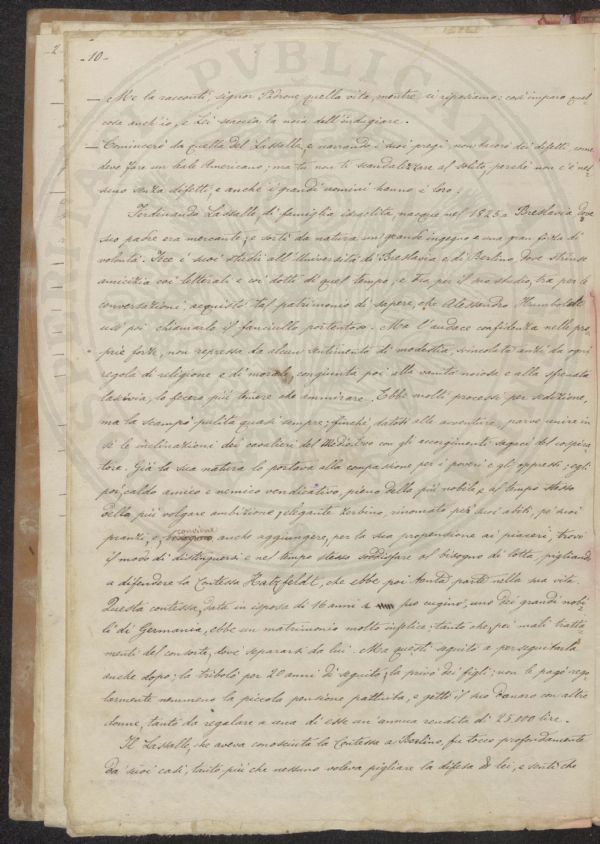 -10-
— Me la racconti, signor Padrone quella vita, mentre ci riposiamo: così imparo qual
cosa anch'io, e Lei scaccia la noia dell'indugiare.
— Comincerò da quella del Lassalle, e narrando i suoi pregi, non tacerò dei difetti, come
deve fare un leale Americano; ma tu non ti scandalizzare al solito, perchè non c'è nes
suno senza difetti, e anche i grandi uomini hanno i loro.
Ferdinando Lassalle, di famiglia israelita, nacque nel 1825 a Breslavia dove
suo padre era mercante; e sortì da natura un grande ingegno e una gran forza di
volontà. Fece i suoi studii all'Università di Breslavia e di Berlino, dove strinse
amicizia coi letterati e coi dotti di quel tempo, e tra pel il suo studio, tra per le
conversazioni, acquistò tal patrimonio di sapere, che Alessandro Humboldt
usò poi chiamarlo il fanciullo portentoso. Ma l'audace confidenza nelle pro
prie forze, non repressa da alcun sentimento di modestia, svincolata anzi da ogni
regola di religione e di morale, congiunta poi alla vanità noiosa e alla sfrenata
lascivia, lo fecero più temere che ammirare. Ebbe molti processi per sedizione,
ma la scampò pulita quasi sempre; finchè datosi alle avventure, parve unire in
sè le inclinazioni dei cavalieri del Medio Evo con gli accorgimenti sagaci del cospira
tore. Già la sua natura lo portava alla compassione per i poveri e gli oppressi; egli
poi, caldo amico e nemico vendicativo, pieno della più nobile e al tempo stesso
della più volgare ambizione; elegante zerbino, rinomato pei suoi abiti, pei suoi
pranzi, e conviene anche aggiungere, per la sua propensione ai piaceri, trovò
il modo di distinguersi e nel tempo stesso soddisfare al bisogno di lotta, pigliando
a difendere la Contessa Hatzfeldt, che ebbe poi tanta parte nella sua vita.
Questa contessa, data in isposa di 16 anni a suo cugino, uno dei grandi nobi
li di Germania, ebbe un matrimonio molto infelice; tanto che, pei mali tratta
menti del consorte, dovè separarsi da lui. Ma questi seguitò a perseguitarla
anche dopo; la tribolò per 20 anni di seguito; la privò dei figli; non le pagò rego
larmente nemmeno la piccola pensione pattuita, e gettò il suo danaro con altre
donne, tanto da regalare a una di esse un'annua rendita di 25.000 lire.
Il Lassalle, che aveva conosciuto la Contessa a Berlino, fu tocco profondamente
dai suoi casi, tanto più che nessuno voleva pigliare la difesa di lei, e sentì che